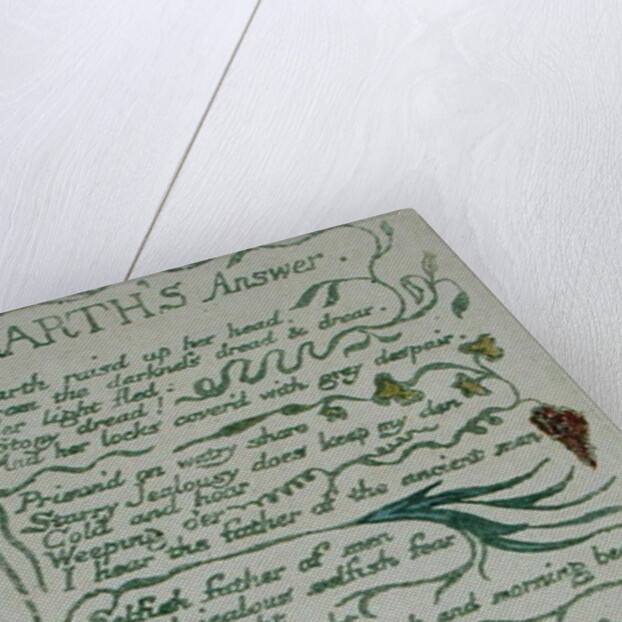 EARTH'S Answer.
Earth rais'd up her head.
From the darkness dread & drear.
Her light fled:
Stony dread!
And her locks cover'd with grey despair.
Prison'd on watry shore
Starry Jealousy does keep my den
Cold and hoar
Weeping o'er
I hear the father of the ancient men
Selfish father of men
jealous selfish fear
and morning